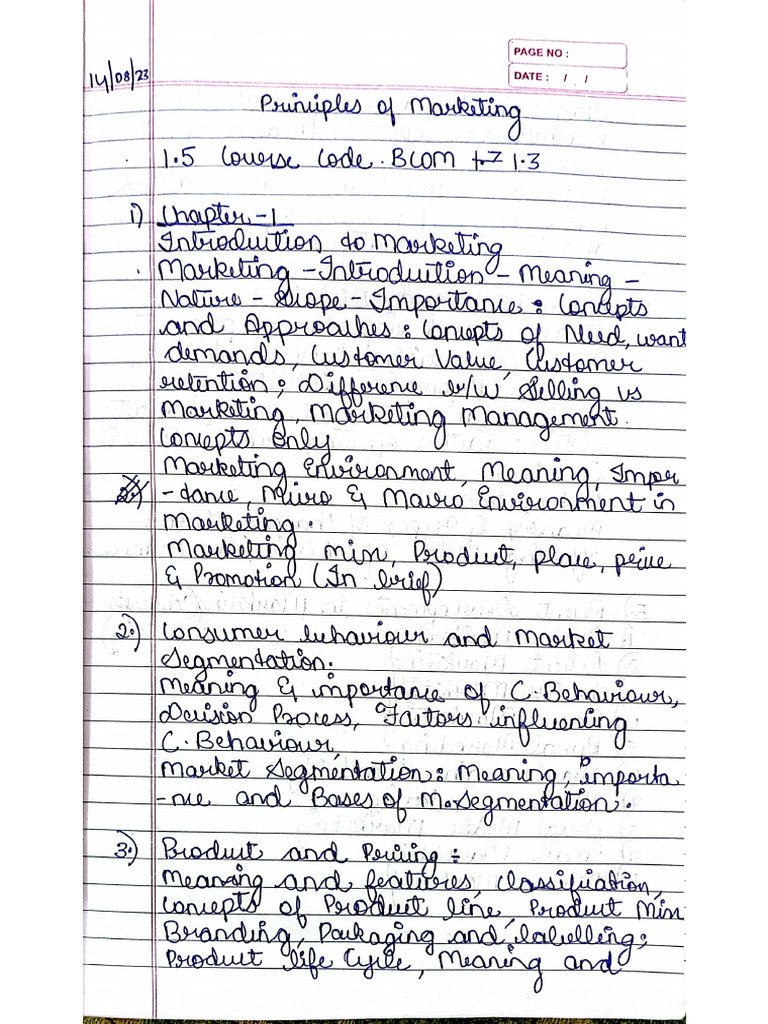 PAGE NO :
DATE : / /
14/08/23
Principles of Marketing
1.5 Course Code. BCOM 1.3
1) Chapter-1
Introduction to Marketing
Marketing - Introduction - Meaning -
Nature - Scope - Importance : Concepts
and Approaches : Concepts of Need, want
demands, Customer Value, Customer
retention ; Difference b/w Selling vs
Marketing, Marketing Management.
Concepts Only
Marketing Environment, Meaning, Impor
2.) -tance, Micro & Macro Environment in
Marketing.
Marketing min, Product, place, price
& Promotion (In brief)
2.) Consumer behaviour and Market
Segmentation.
Meaning & importance of C. Behaviour,
Decision Process, Factors influencing
C. Behaviour,
Market Segmentation : Meaning, importa
-nce and Bases of M.Segmentation.
3.) Product and Pricing :
Meaning and features, Classification,
Concepts of Product line, Product Min
Branding, Packaging and labelling ;
Product life Cycle, Meaning and